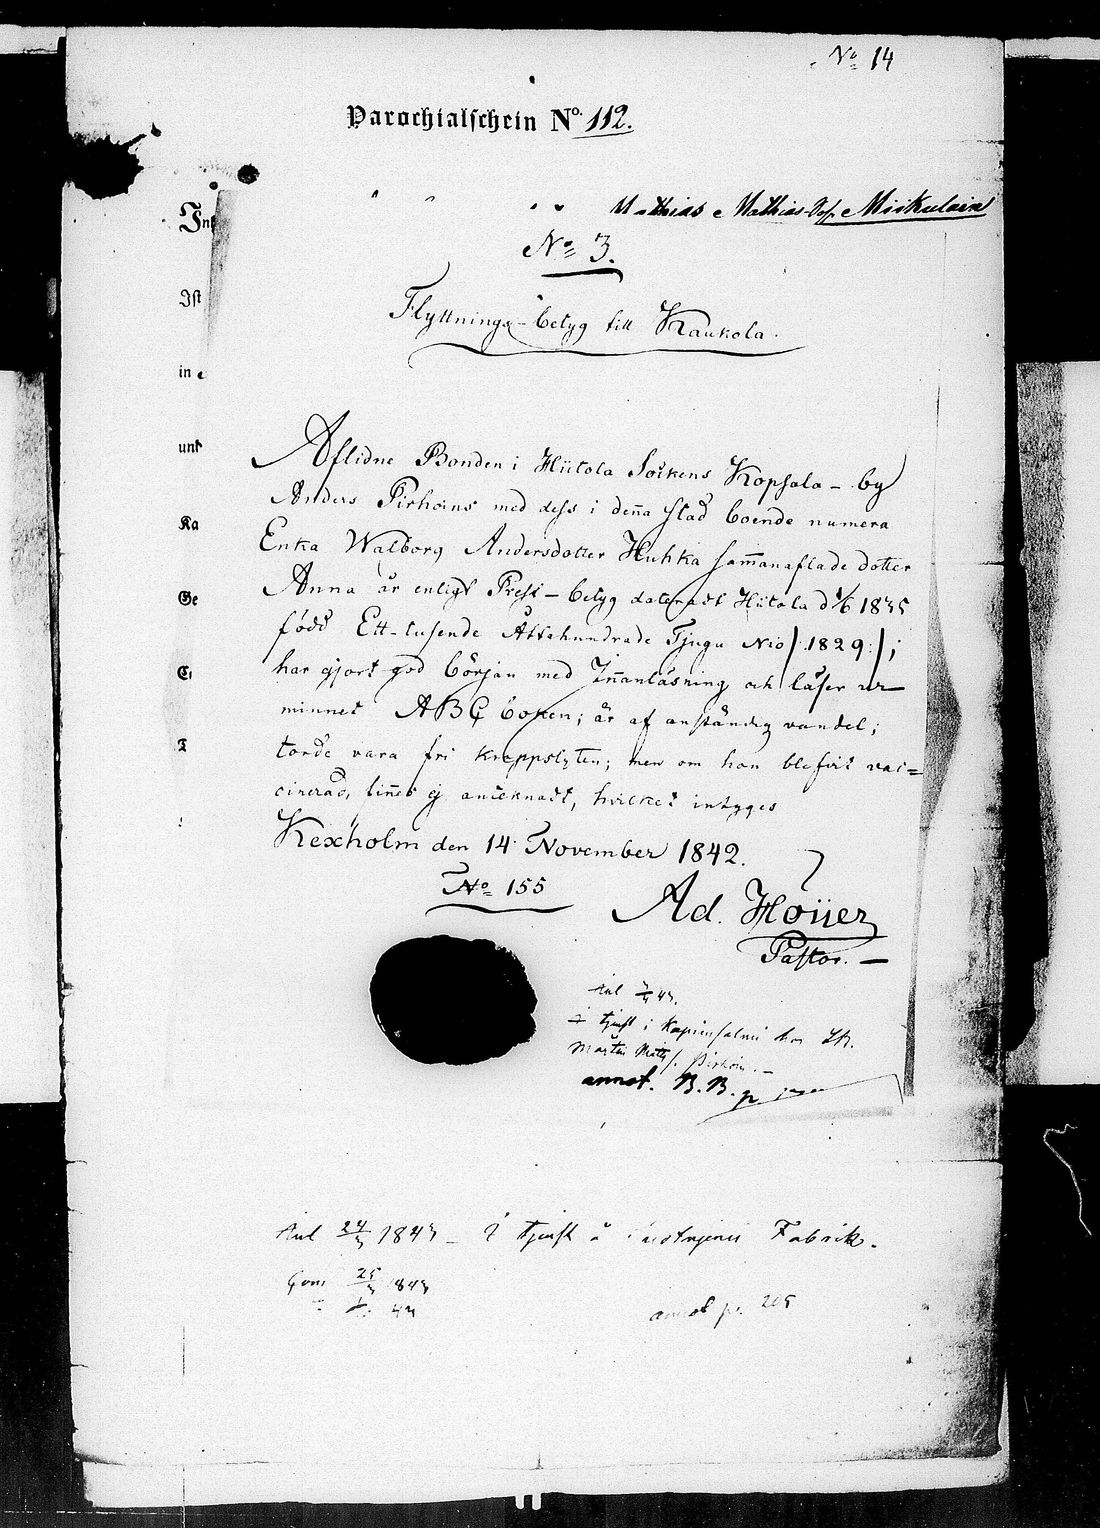 No 14
Parochialschein No. 112.
Mathias Mathias Miikulain
No 3.
Flyttnings-betyg till Kaukola.
Int
Ist
in
unt
Ka
Ge
T
Aflidne Bonden i Hiitola Sockens Kopsala-by
Anders Pirhoins med dess i denna stad boende numera
Enka Walborg Andersdotter Huhka sammanaflade dotter
Anna är enligt Prest-betyg dateradt Hiitola d 1/6 1835
född Ett-tusende Åttahundrade Tjugu Nio /:1829:/;
har gjort god början med Innanläsning och läser ur
minnet ABC boken; är af anständig vandel;
torde vara fri kroppslyten; men om hon blefvit vac=
cinerad, finnes ej antecknadt, hvilket intygas
Kexholm den 14 November 1842.
No 155
Ad. Höijer
Pastor.
i tjenst i Kapiensalmi hos
Mårten Matss. Pirhoin.
annot. B.B. p
Anl 24/3 1843 i tjenst å Fabrik.
25/3 1843
annot p. 205